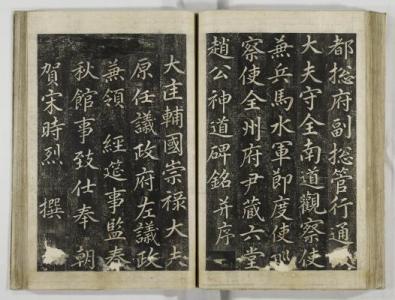 都捴府副捴管行通
大夫守全南道觀察使
兼兵馬水軍節度使巡
察使全州府尹藏六堂
趙公神道碑銘并序
大匡輔國崇祿大夫
原任議政府左議政
兼領 經筵事監春
秋館事致仕奉 朝
賀宋時烈 撰